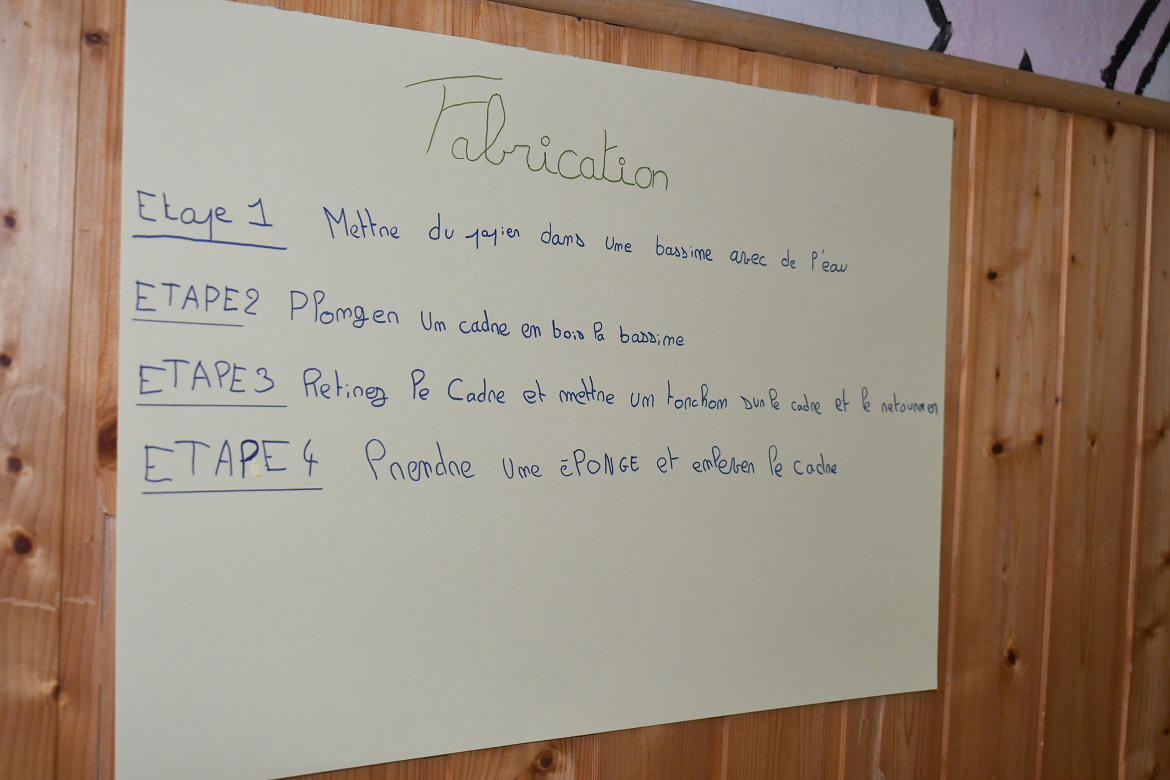 Fabrication
Etape 1 Mettre du papier dans une bassine avec de l'eau
ETAPE2 Plonger un cadre en bois la bassine
ETAPE3 Retirez le Cadre et mettre un torchon sur le cadre et le retourner
ETAPE 4 Prendre une éPONGE et enlever le cadre